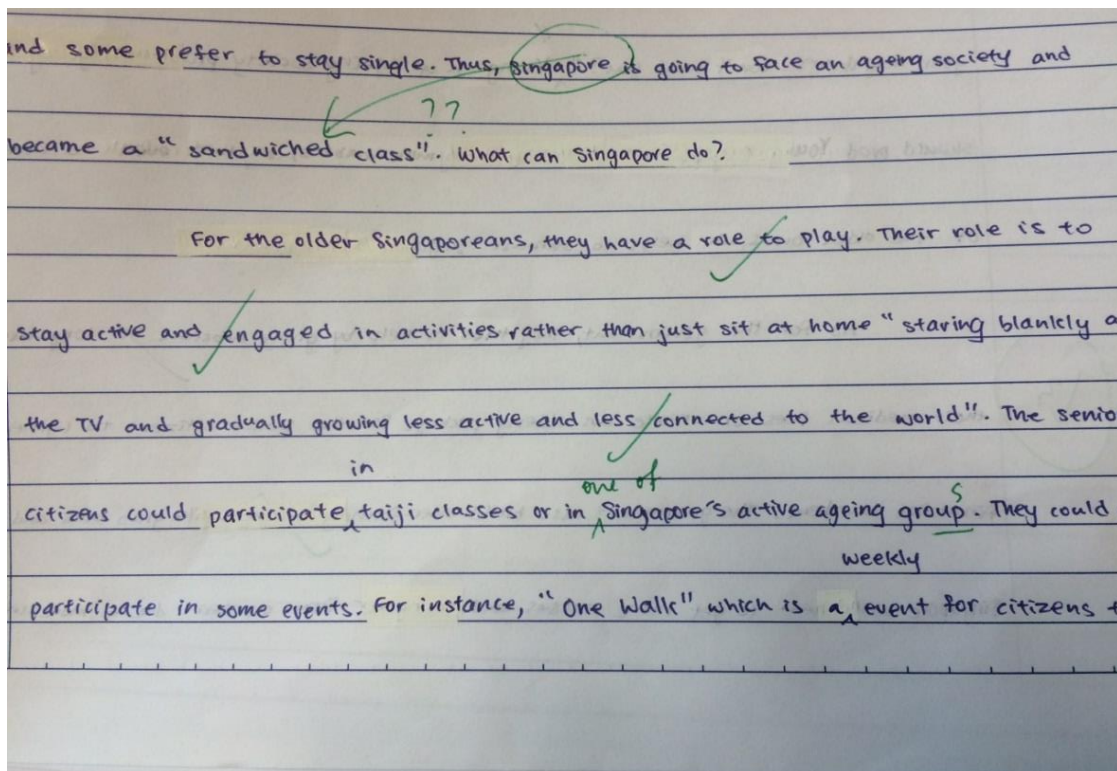 and some prefer to stay single. Thus, Singapore is going to face an ageing society and
??
became a "sandwiched class". What can Singapore do?
For the older Singaporeans, they have a role to play. Their role is to
stay active and engaged in activities rather than just sit at home "staring blankly a
the TV and gradually growing less active and less connected to the world". The senio
in
one of
s
citizens could participate taiji classes or in Singapore's active ageing group. They could
weekly
participate in some events. For instance, "One Walk" which is a event for citizens t